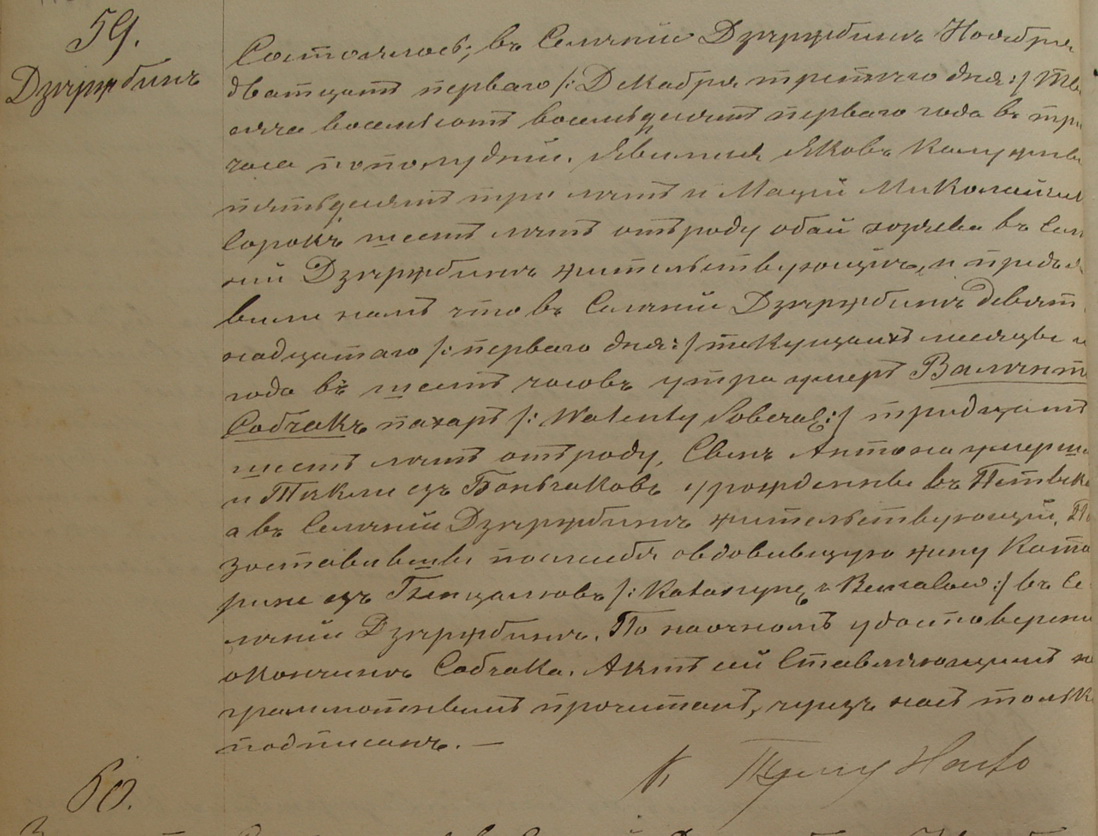 59.
Дзержбинъ
Состоялось, въ Селеніи Дзержбинъ Ноября
двадцать перваго /: Декабря третьяго дня :/ Ты
сяча восемьсотъ восемьдесятъ перваго года въ три
часа пополудни. Явились Яковъ
пятьдесятъ три летъ и Мацей Миколайчик
Сорокъ шесть летъ отъ роду обаи хозяева въ Селе
ніи Дзержбинъ жительствующіе, и предъя
вили намъ что въ Селеніи Дзержбинъ девят
надцатаго /: перваго дня :/ текущихъ месяца и
года въ шесть часовъ утра умеръ Валентъ
Собчакъ пахарь /: Walenty Sobczak :/ тридцать
шесть летъ отъ роду, Сынъ Антона умерша
и Текли изъ урожденный въ
а въ Селеніи Дзержбинъ жительствующій. По
зоставивши после себя овдовевшую жену Ката
рину изъ /: Katarzynę z :/ въ Се
леніи Дзержбинъ. По наочномъ удостоверени
о кончине Собчака. Актъ сей Ставляющимъ не
граммотнымъ прочитанъ, чрезъ насъ только
подписанъ. —
60.